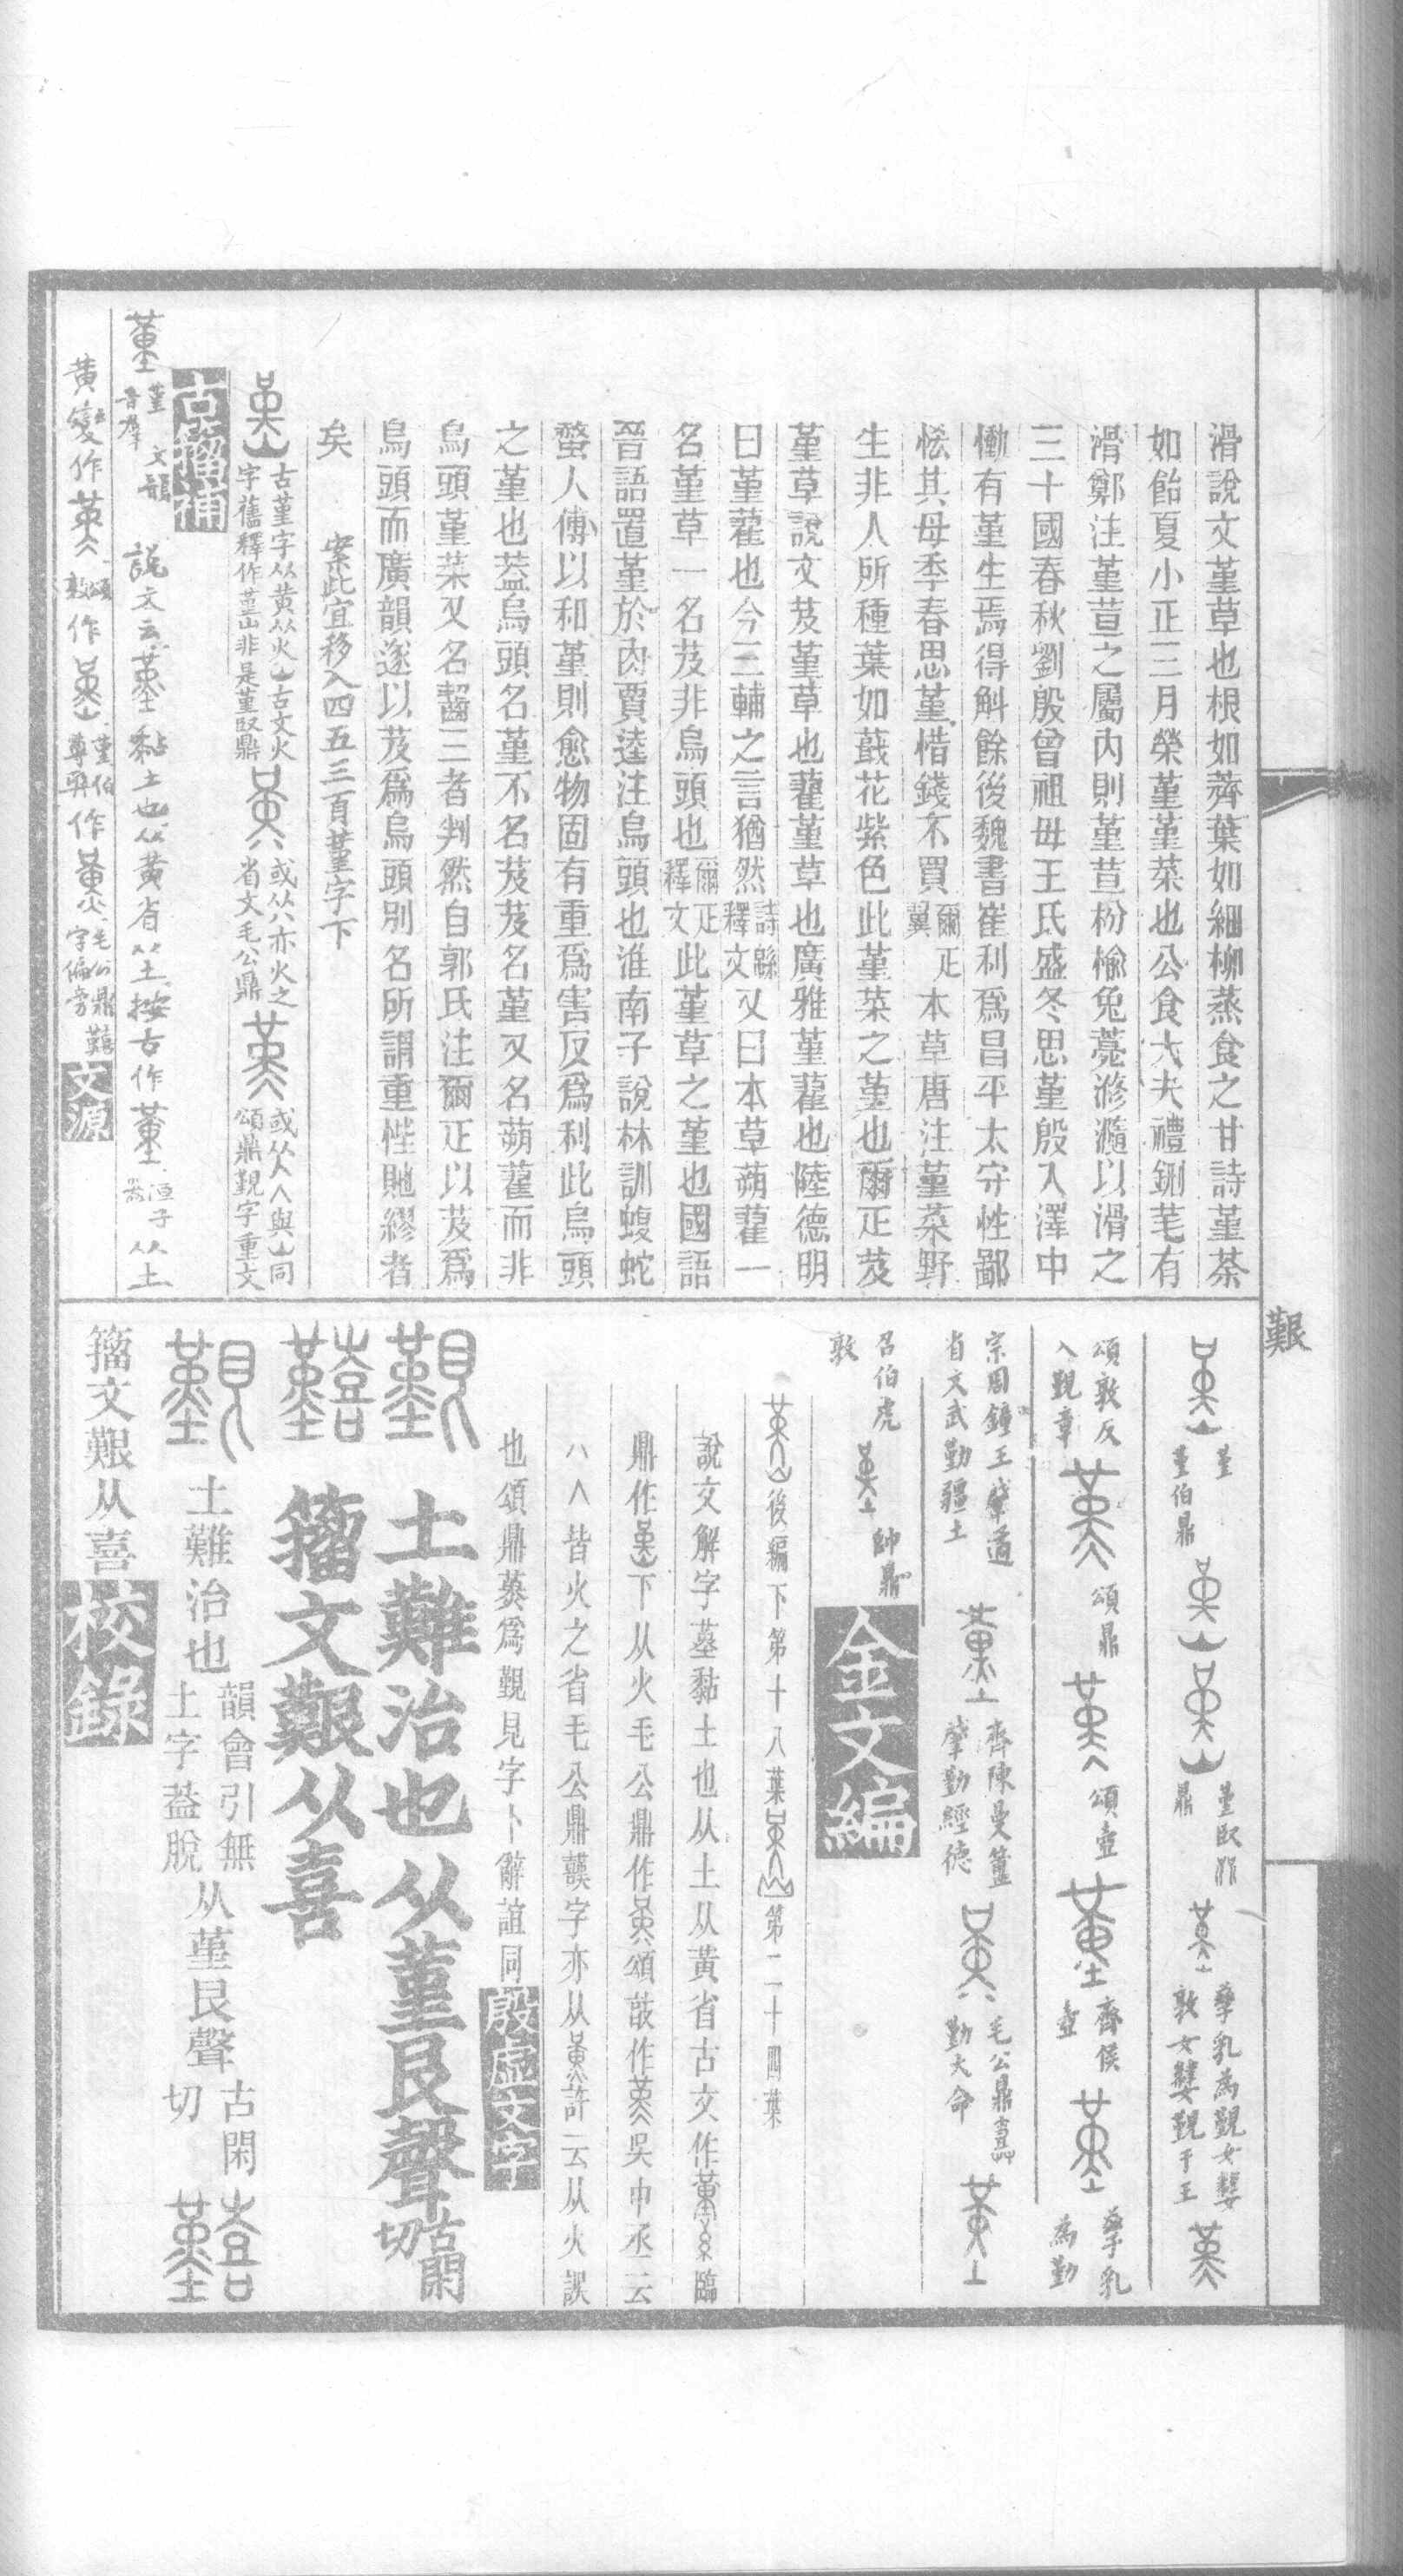 滑說文堇草也根如薺葉如細柳蒸食之甘詩堇荼
如飴夏小正二月榮堇堇菜也公食大夫禮鉶芼有
滑鄭注堇荁之屬內則堇荁枌榆兔薧滫瀡以滑之
三十國春秋劉殷曾祖母王氏盛冬思堇殷入澤中
慟有堇生焉得斛餘後魏書崔利爲昌平太守性鄙
恡其母季春思堇惜錢不買爾疋翼本草唐注堇菜野
生非人所種葉如蕺花紫色此堇菜之堇也爾疋芨
堇草說文芨堇草也藋堇草也廣雅堇藋也陸德明
曰堇藋也今三輔之言猶然詩緜釋文又曰本草蒴藋一
名堇草一名芨非烏頭也爾疋釋文此堇草之堇也國語
晉語置堇於肉賈逵注烏頭也淮南子說林訓蝮蛇
螫人傅以和堇則愈物固有重爲害反爲利此烏頭
之堇也葢烏頭名堇不名芨芨名堇又名蒴藋而非
烏頭堇菜又名齧三者判然自郭氏注爾疋以芨爲
烏頭而廣韻遂以芨爲烏頭別名所謂重悂貤繆者
矣　案此宜移入四五三頁堇字下
古堇字从黄从火山古文火
字舊釋作堇山非是堇臤鼎
或从八亦火之
省文毛公鼎
或从人與山同
頌鼎覲字重文
古籀補
堇 堇 文韻 音羣 說文云堇黏土也从黄省从土按古作堇 洹子器 从土
黄變作 頌敦 作 堇伯尊䵼 作 毛公鼎 字偏旁 文源
艱
堇 堇伯鼎
堇臤鼎
孳乳爲覲女𡢁敦女𡢁覲于王
頌敦反入覲章
頌鼎
頌壺
齊侯壺
孳乳為勤
宗周鐘王肇遹省文武勤疆土
齊陳曼簠肇勤經德
毛公鼎勤大命
召伯虎敦
帥鼎
金文編
後編下第十八葉 第二十四葉
說文解字堇黏土也从土从黄省古文作
鼎作 下从火毛公鼎作 頌敲作 吳中丞云
八人皆火之省毛公鼎 字亦从 許云从火誤
也頌鼎 爲覲見字卜辭誼同 殷虛文字
土難治也从堇艮聲古閑切
籀文艱从喜
土難治也 韻會引無土字葢脫 从堇艮聲 古閑切
籀文艱从喜 校錄